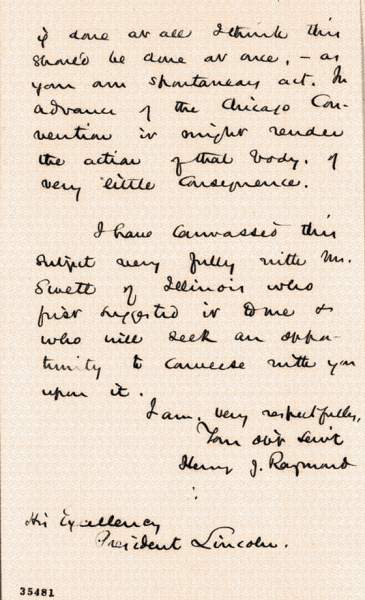 if done at all I think this
should be done at once, – as
your own spontaneous act. In
advance of the Chicago Con-
vention it might render
the action of that body, of
very little consequence.
I have canvassed this
subject very fully with Mr.
Swett of Illinois who
first suggested it to me &
who will seek an oppor-
tunity to converse with you
upon it.
I am, very respectfully,
Your obt Servt
Henry J. Raymond
His Excellency
President Lincoln.
35481